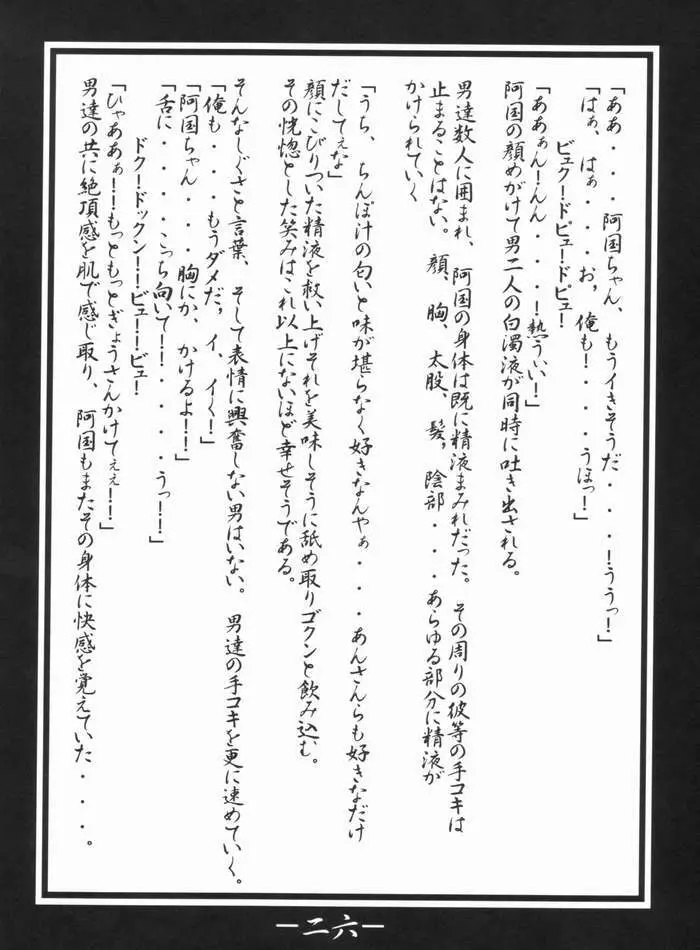 「ああ・・・阿国ちゃん、もうイきそうだ・・・！ううっ！」
「はぁ、はぁ・・・お，俺も！・・・・うほっ！」
ビュク！ドビュー！ドピュ！
「ああぁん！んん・・・・！熱ういい！」
阿国の顔めがけて男二人の白濁液が同時に吐き出される。
男達数人に囲まれ、阿国の身体は既に精液まみれだった。その周りの彼等の手コキは
止まることはない。顔，胸，太股，髪，陰部・・・あらゆる部分に精液が
かけられていく
「うち、ちんぽ汁の匂いと味が堪らなく好きなんやぁ・・・あんさんらも好きなだけ
だしてぇな」
顔にこびりついた精液を救い上げそれを美味しそうに舐め取りゴクンと飲み込む。
その恍惚とした笑みはこれ以上にないほど幸せそうである。
そんなしぐさと言葉、そして表情に興奮しない男はいない。男達の手コキを更に速めていく。
「俺も・・・もうダメだ，イ，イく！」
「阿国ちゃん・・・胸にか、かけるよ！！」
「舌に・・・・こっち向いて！！・・・・うっ！！」
ドクー！ドックン！！ビュー！！ビュ！
「ひゃああぁ！！もっともっとぎょうさんかけてぇぇ！！」
男達の共に絶頂感を肌で感じ取り、阿国もまたその身体に快感を覚えていた・・・。
－二六－